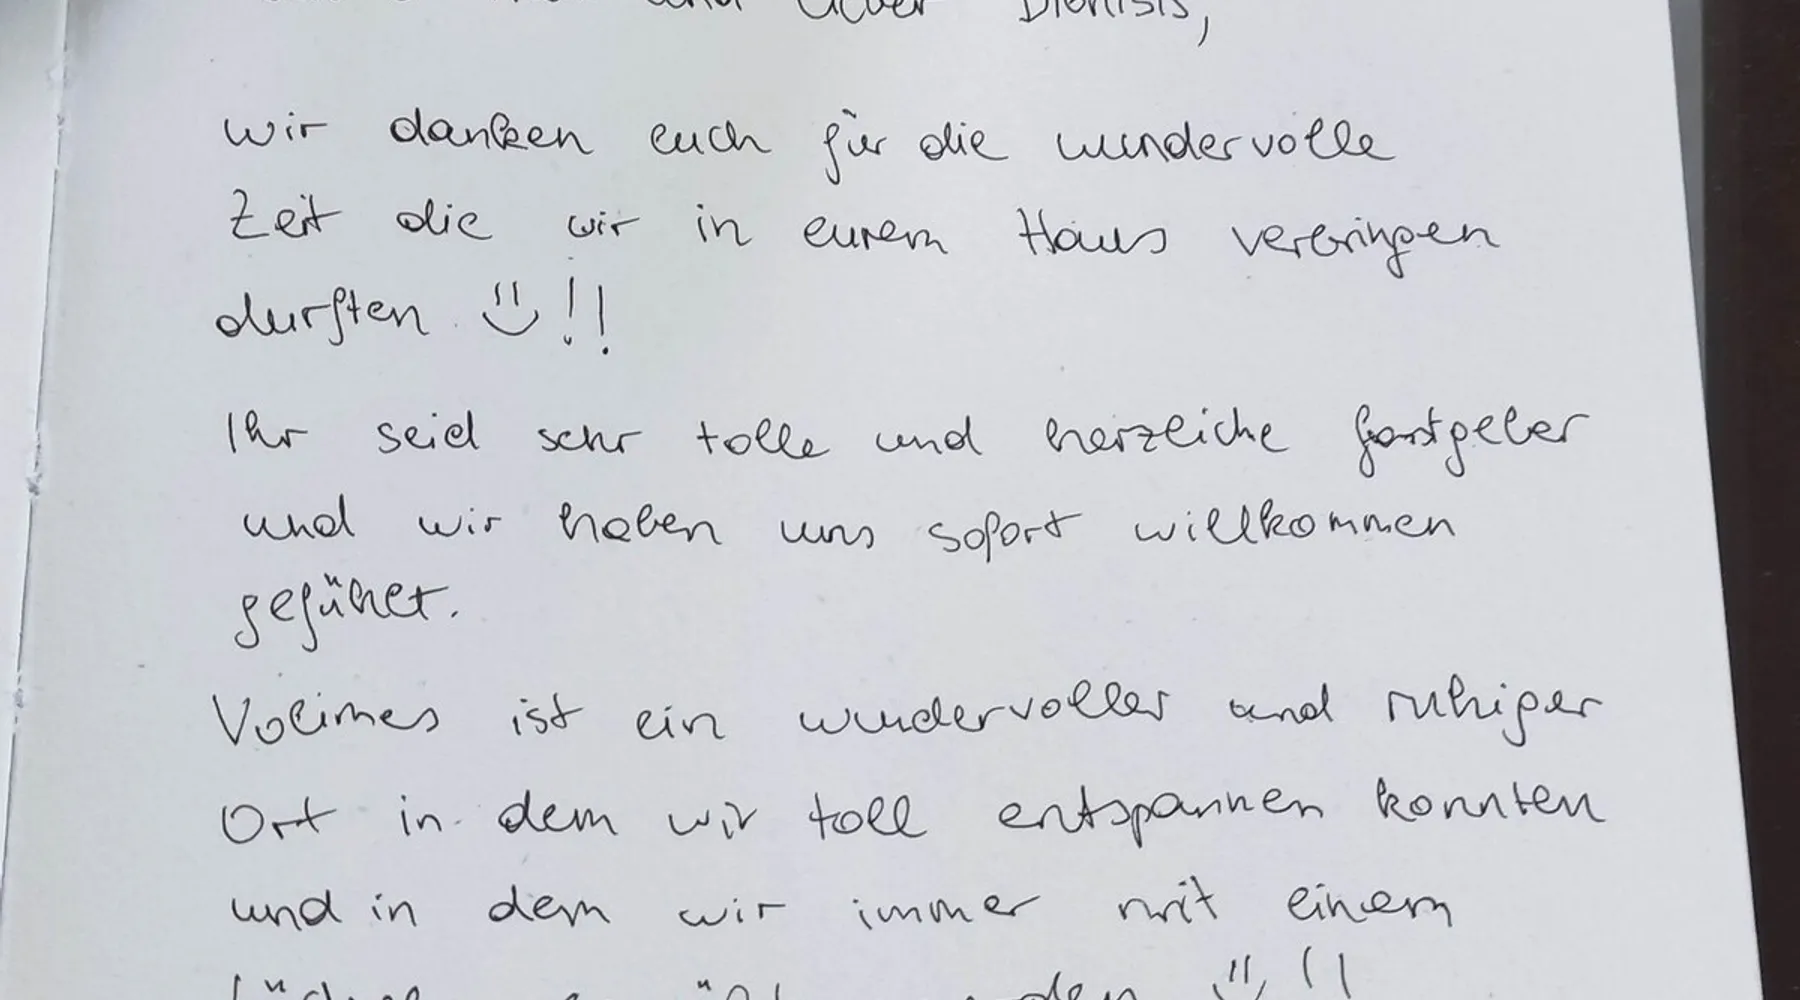 und lieber Dionisis,
wir danken euch für die wundervolle
Zeit die wir in eurem Haus verbringen
durften !!
Ihr seid sehr tolle und herzliche Gastgeber
und wir haben uns sofort willkommen
gefühlt.
Volimes ist ein wundervoller und ruhiger
Ort in dem wir toll entspannen konnten
und in dem wir immer mit einem